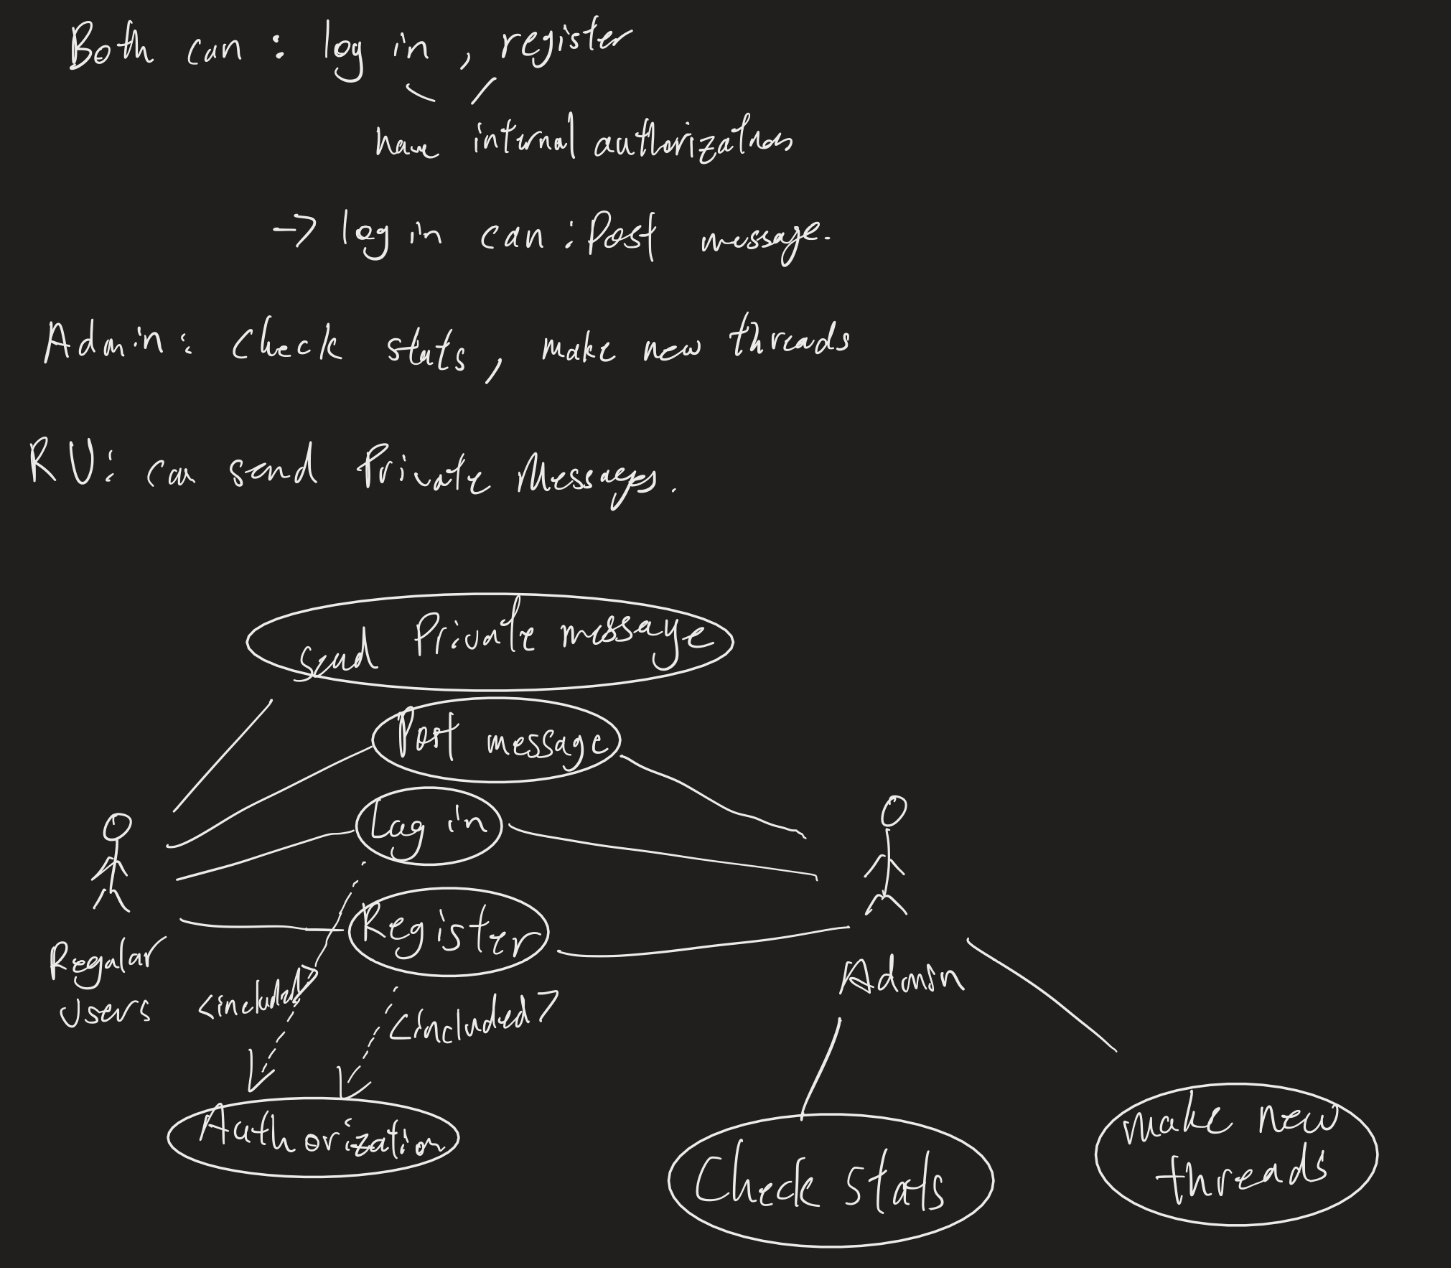 Both can : log in , register
have internal authorizations
-> log in can : Post message.
Admin : Check stats , make new threads
RU : can send Private Messages.
send Private message
Post message
Log in
Register
Regular
Users
<included>
<included>
Admin
Authorization
Check stats
make new
threads